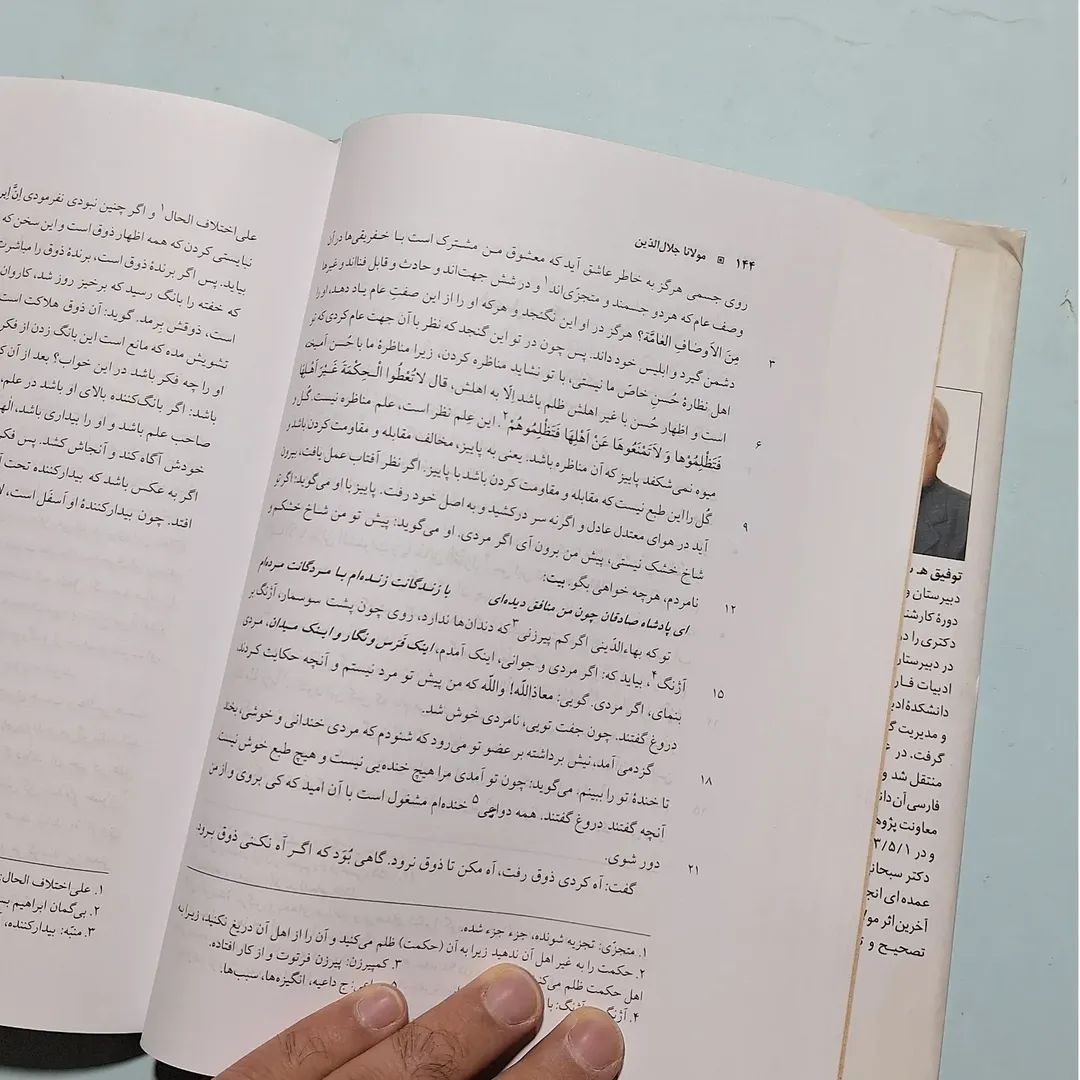 ۱۴۴ ▣ مولانا جلال‌الدین
روی جسمی هرگز به خاطر عاشق آید که معشوق من مشترک است با خفریقی‌ها در آن
وصف عام که هر دو جسمند و متجزّی‌اند۱ و در شش جهت‌اند و حادث و قابل فنااند و غیرها
۳ مِنَ الاَوصافِ العَامَّة؟ هرگز در او این نگنجد و هرکه او را از این صفتِ عام یاد دهد، او را
دشمن گیرد و ابلیس خود داند. پس چون در تو این گنجد که نظر با آن جهت عام کردی که تو
اهل نظارهٔ حُسنِ خاصّ ما نیستی، با تو نشاید مناظره کردن، زیرا مناظرهٔ ما با حُسن آمیخته
۶ است و اظهار حُسن با غیر اهلش ظلم باشد اِلّا به اهلش، قال لاتُعْطُوا الْحِکْمَةَ غَیْرَ اَهْلِهَا
فَتَظْلِمُوْها وَ لاَتَمْنَعُوهَا عَنْ اَهْلِهَا فَتَظْلِمُوهُمْ۲. این علم نظر است، علم مناظره نیست. گل و
میوه نمی‌شکفد پاییز که آن مناظره باشد. یعنی به پاییز، مخالف مقابله و مقاومت کردن باشد و
۹ گُل را این طبع نیست که مقابله و مقاومت کردن باشد با پاییز. اگر نظر آفتاب عمل یافت، بیرون
آید در هوای معتدل عادل و اگرنه سر درکشید و به اصل خود رفت. پاییز با او می‌گوید: اگر تو
شاخ خشک نیستی، پیش من برون آی اگر مردی. او می‌گوید: پیش تو من شاخ خشکم و
۱۲ نامردم، هرچه خواهی بگو. بیت:
ای پادشاه صادقان چون من منافق دیده‌ای با زندگانت زنده‌ام با مردگانت مرده‌ام
تو که بهاءالدّینی اگر کم پیرزنی۳ که دندان‌ها ندارد، روی چون پشت سوسمار، آژنگ بر
۱۵ آژنگ۴، بیاید که: اگر مردی و جوانی، اینک آمدم، اینک فَرَس و نگار و اینک میدان، مردی
بنمای، اگر مردی. گویی: معاذاللّه! واللّه که من پیش تو مرد نیستم و آنچه حکایت کردند
دروغ گفتند. چون جفت تویی، نامردی خوش شد.
۱۸ گژدمی آمد، نیش برداشته بر عضو تو می‌رود که شنودم که مردی خندانی و خوشی، بخند
تا خندهٔ تو را ببینم. می‌گوید: چون تو آمدی مرا هیچ خنده‌یی نیست و هیچ طبع خوش نیست
آنچه گفتند دروغ گفتند. همه دواعی۵ خنده‌ام مشغول است با آن امید که کی بروی و از من
۲۱ دور شوی.
گفت: آه کردی ذوق رفت، آه مکن تا ذوق نرود. گاهی بُوَد که اگر آه نکنی ذوق برود
۱. متجزّی: تجزیه شونده، جزء جزء شده.
۲. حکمت را به غیر اهل آن ندهید زیرا به آن (حکمت) ظلم می‌کنید و آن را از اهل آن دریغ نکنید، زیرا به
اهل حکمت ظلم می‌کنید ۳. کمپیرزن: پیرزن فرتوت و از کار افتاده.
۴. آژنگ آژنگ: با ج داعیه، انگیزه‌ها، سبب‌ها.
علی اختلاف الحال۱ و اگر چنین نبودی نفرمودی اِنَّ
نبایستی کردن که همه اظهار ذوق است و این سخن که
بیاید. پس اگر برندهٔ ذوق است، برندهٔ ذوق را مباشرت
که خفته را بانگ رسید که برخیز روز شد، کاروان
است، ذوقش برمد. گوید: آن ذوق هلاکت است
تشویش مده که مانع است این بانگ زدن از فکر
او را چه فکر باشد در این خواب؟ بعد از آن که
باشد: اگر بانگ‌کننده بالای او باشد در علم،
صاحب علم باشد و او را بیداری باشد،
خودش آگاه کند و آنجاش کشد. پس
اگر به عکس باشد که بیدارکننده تحت
افتد. چون بیدارکنندهٔ او اَسفَل است،
۱. علی اختلاف الحال:
۲. بی‌گمان ابراهیم
۳. منبّه: بیدارکننده،
توفیق هـ
دبیرستان و
دورهٔ
دکتری را در
در دبیرستان
ادبیات
دانشکدهٔ
و مدیریت
گرفت. در
منتقل شد و
فارسی آن
معاونت
و در ۳/۵/۱
دکتر
عمده‌ای
آخرین اثر
تصحیح و